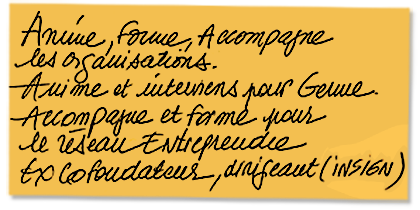 Anime, forme, Accompagne
les organisations.
Anime et interviens pour Germe.
Accompagne et forme pour
le réseau Entreprendre
Ex Cofondateur, dirigeant (INSIGN)